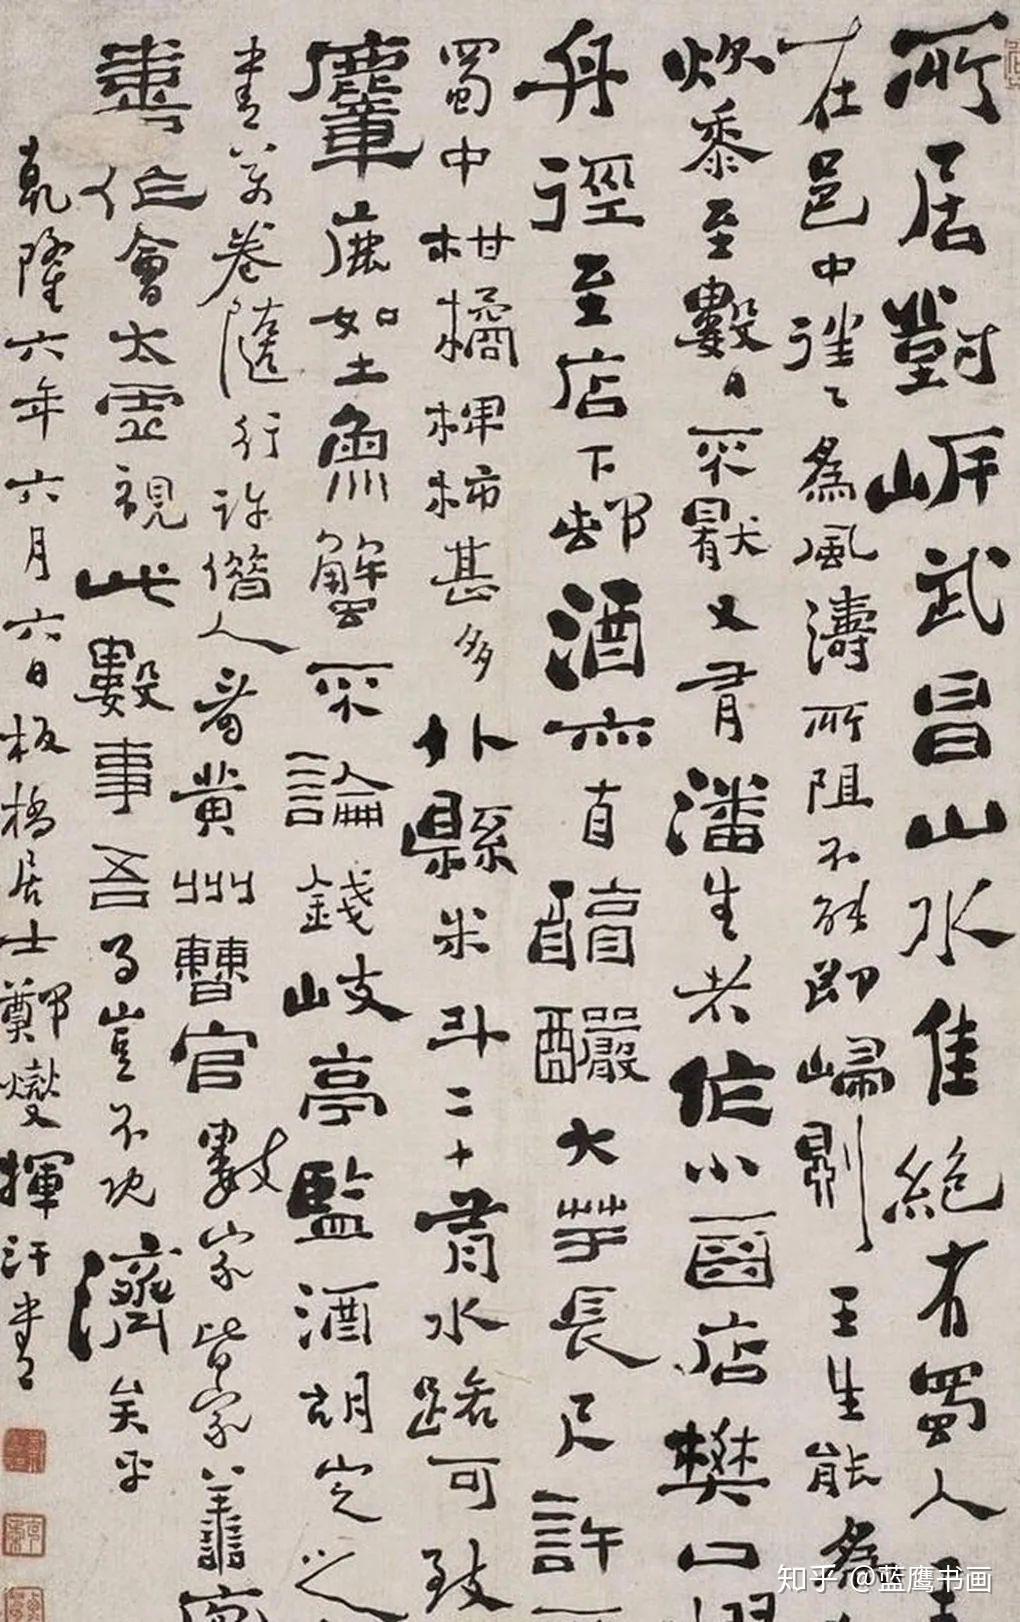 所居對岸武昌山水佳絕有蜀人王
在邑中往々為風濤所阻不能即歸則王生能為
炊黍至數日不厭又有潘生者作小酉店樊口櫂
舟徑至店下邨酒亦自醇釅大芋長尺許
蜀中柑橘椑柿甚多外縣米斗二十有水路可致
麞鹿如土魚蟹不論錢岐亭監酒胡定之
書万卷隨行許借人看黃州曹官數家皆家善庖
喜作會太虛視此數事吾事豈不既濟矣乎
乾隆六年六月六日板橋居士鄭燮揮汗書
知乎 @蓝鹰书画